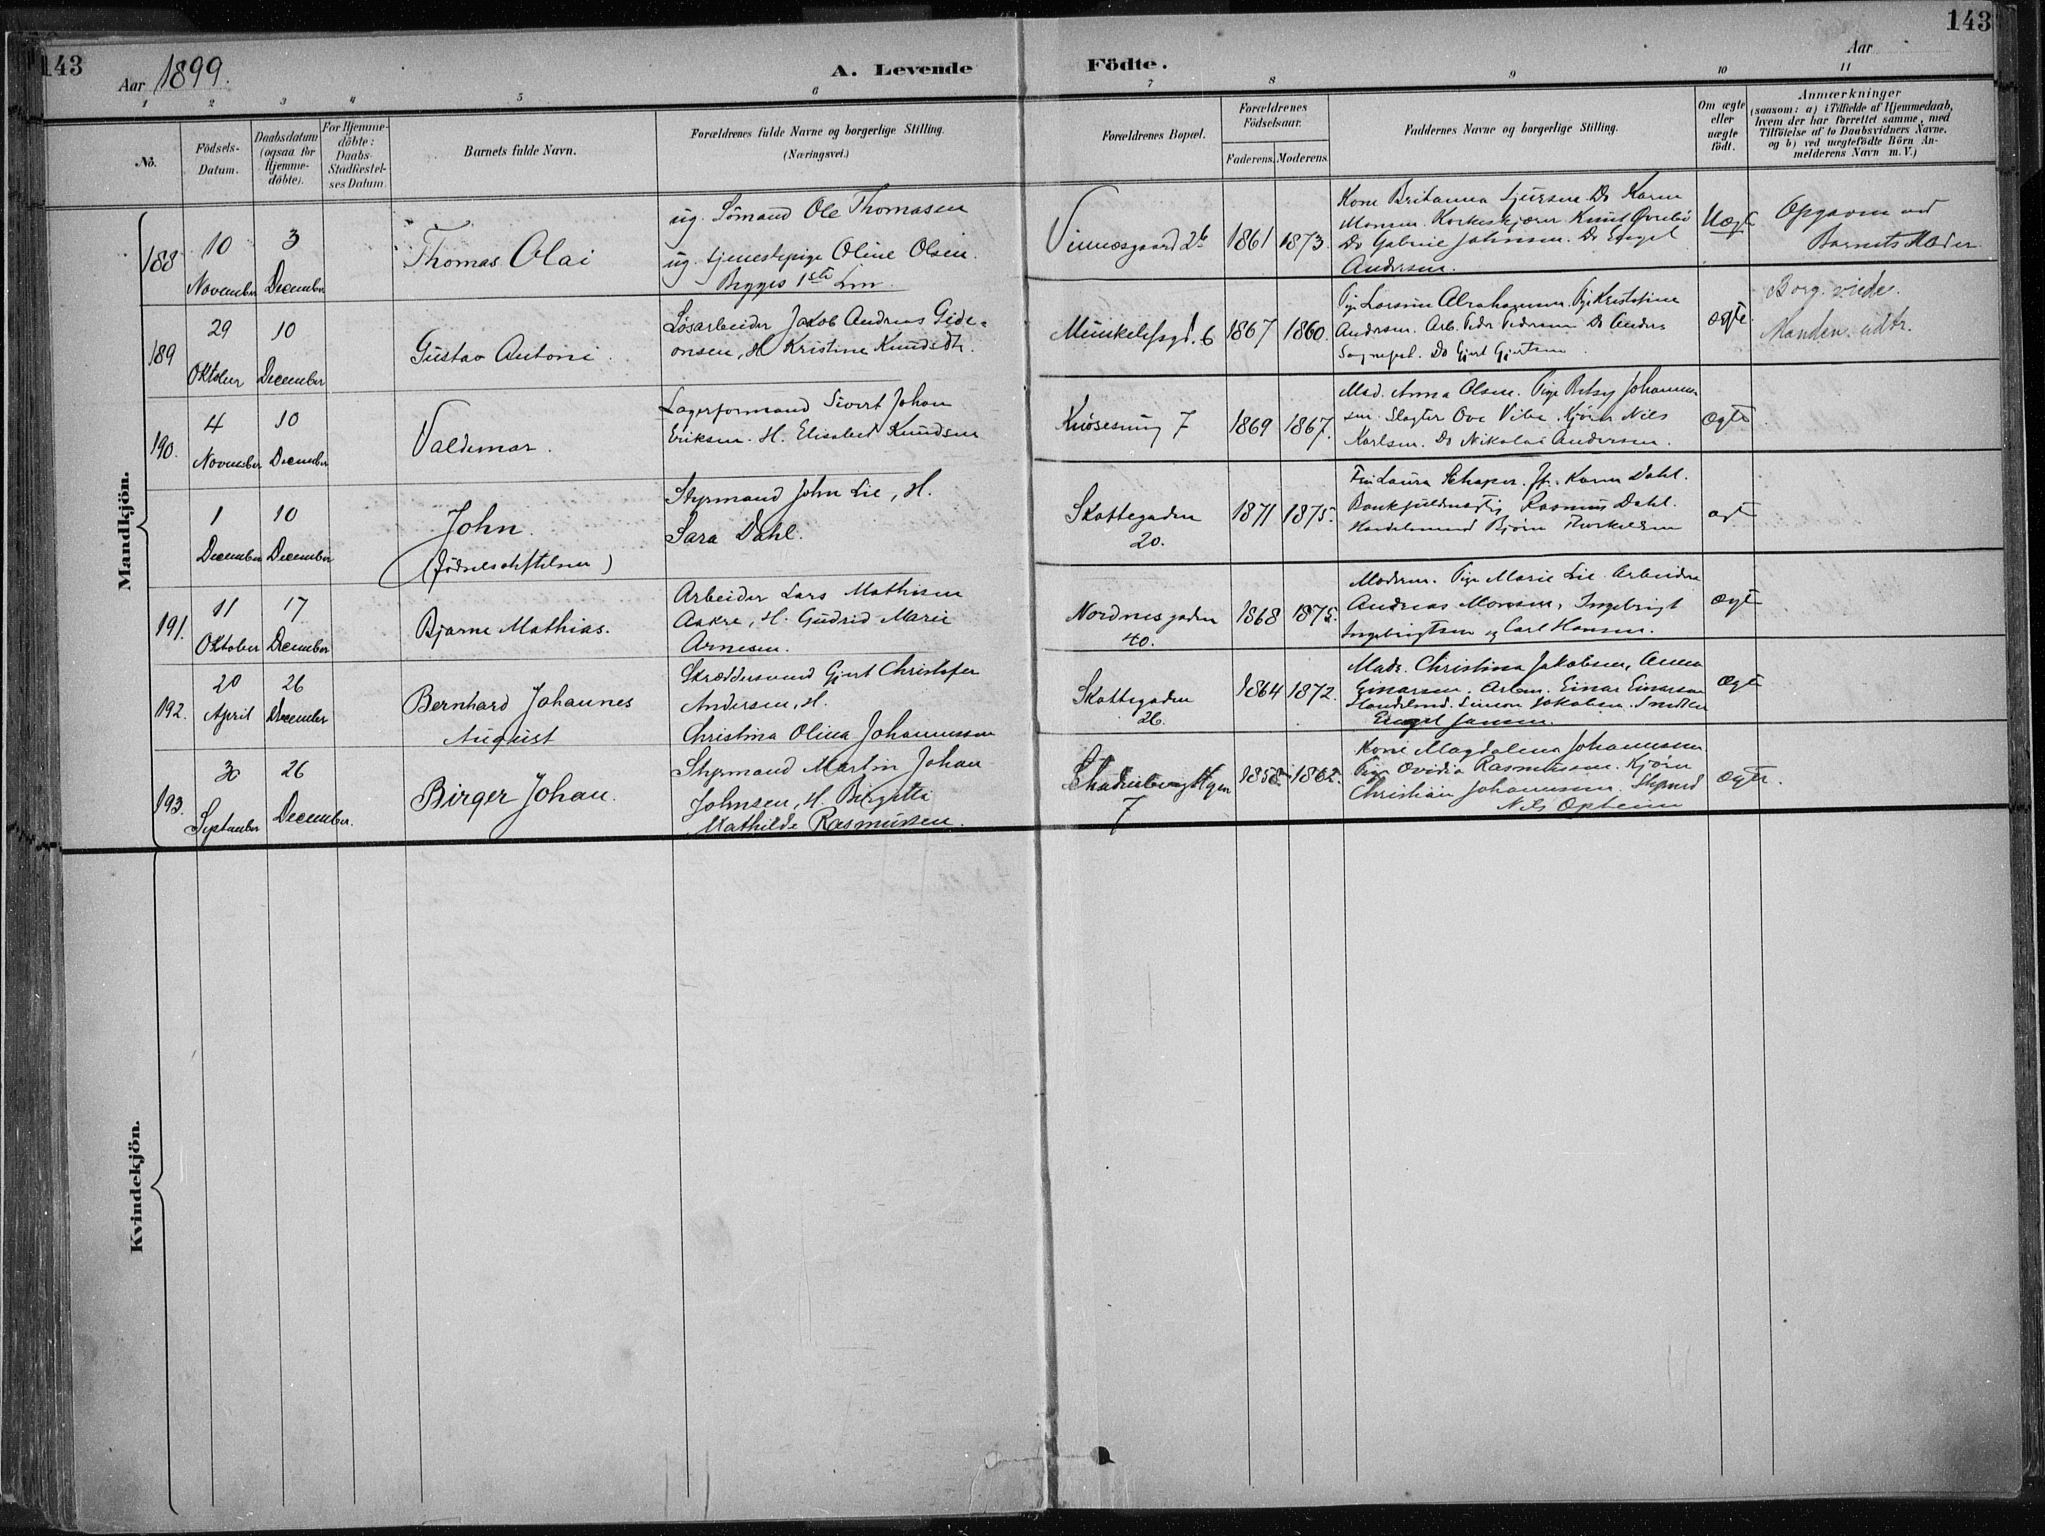 143
143
Aar 1899.
A. Levende Födte.
Aar
1 2 3 4 5 6 7 8 9 10 11
Nò.
Födsels-
Datum.
Daabsdatum
(ogsaa for
Hjemme-
döbte).
For Hjemme-
döbte:
Daabs-
Stadfæstel-
ses Datum.
Barnets fulde Navn.
Forældrenes fulde Navne og borgerlige Stilling.
(Næringsvei.)
Forældrenes Bopæl.
Forældrenes
Födselsaar.
Faderens.
Moderens.
Faddernes Navne og borgerlige Stilling.
Om ægte
eller
uægte
födt.
Anmærkninger
(saasom: a) i Tilfælde af Hjemmedaab,
hvem der har forrettet samme, med
Tilföielse af to Daabsvidners Navne,
og b) ved uægtefödte Börn An-
melderens Navn m. V.)
Mandkjön.
188
10
November
3
December
Thomas Olai
ug. Sömand Ole Thomasen
ug. tjenestepige Oline Olsen.
Begges 1ste Lm.
1861
1873.
Kone Britanna Sjursen. Do Karen
Monsen. Knut
Do Johnsen. Do Engel
Andersen.
Uægt
Opgaven ved
Barnets Moder.
189
29
Oktober
10
December
Gustav Antoni.
Løsarbeider Jakob Andreas Gide-
onsen, H. Kristine Knudsdtr.
Munkelifsgd. 6
1867
1860.
Pige Abrahamsen. Pige Kristofine
Andersen. Arb. Peder Pedersen Do Anders
Do Gjert Gjertsen
ægte.
Borg. viede.
Manden udtr.
190.
4
November
10
December
Valdemar.
Lagerformand Sivert Johan
Eriksen. H. Elisabet Knudsen
Knøsesmug 7
1869
1867.
Mad. Anna Olsen. Pige Betsy Johannes
sen. Slagter Ove Vibe. Kjører Nils
Karlsen. Do Nikolai Andersen.
ægte
1
December
10
December
John.
(Fødselsattesten)
Styrmand John Lie, H.
Sara Dahl.
Skottegaden
20.
1871
1875.
Fru Laura Karen Dahl.
Rasmus Dahl.
Bjørn
191.
11
Oktober
17
December
Bjarne Mathias.
Arbeider Lars Mathisen
Aakre, H. Gudrid Marie
Arnesen.
Nordnesgaden
40.
1868
1875.
Moderen. Pige Marie Lie. Arbeidere
Andreas Monsen, Ingebrigt
Ingebrigtsen og Carl Hansen.
ægte
192.
20
April
26
December
Bernhard Johannes
August
Skræddersvend Gjert Christofer
Andersen, H.
Christina Olina Johannessen
Skottegaden
26.
1864
1872.
Mads. Christina Jakobsen, Anna
Einarsen. Einar Einarsen
Simon Jakobsen.
Engel Jansen.
ægte
193.
30
September
26
December.
Birger Johan.
Styrmand Martin Johan
Johnsen, H. Birgitta
Mathilde Rasmussen.
7
1858
1862.
Kone Magdalina Johannessen.
Pige Ovidia Rasmussen. Kjører
Christian Johannesen. Styrmd
Nils Opheim
ægte.
Kvindekjön.